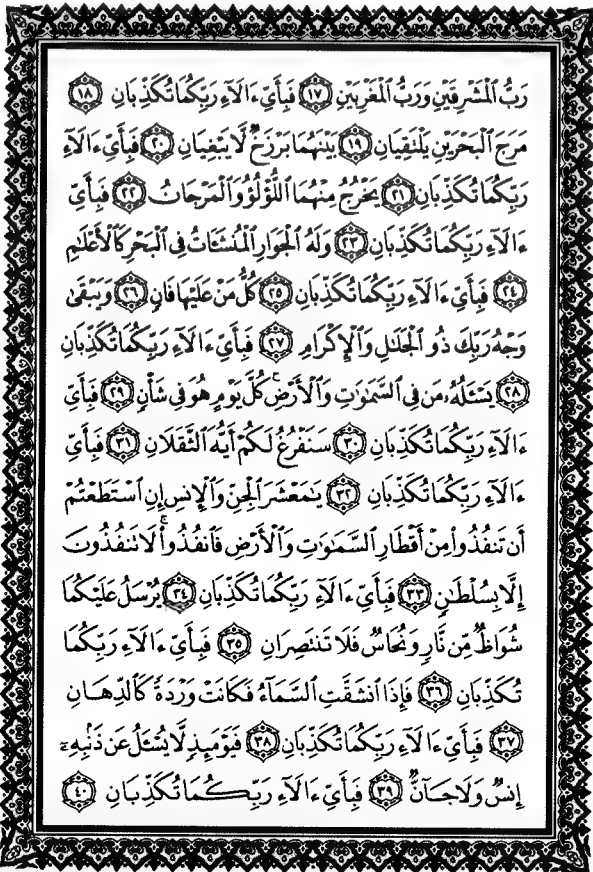 رَبُّ ٱلْمَشْرِقَيْنِ وَرَبُّ ٱلْمَغْرِبَيْنِ ١٧ فَبِأَيِّ ءَالَآءِ رَبِّكُمَا تُكَذِّبَانِ ١٨
مَرَجَ ٱلْبَحْرَيْنِ يَلْتَقِيَانِ ١٩ بَيْنَهُمَا بَرْزَخٌ لَّا يَبْغِيَانِ ٢٠ فَبِأَيِّ ءَالَآءِ
رَبِّكُمَا تُكَذِّبَانِ ٢١ يَخْرُجُ مِنْهُمَا ٱللُّؤْلُؤُ وَٱلْمَرْجَانُ ٢٢ فَبِأَيِّ
ءَالَآءِ رَبِّكُمَا تُكَذِّبَانِ ٢٣ وَلَهُ ٱلْجَوَارِ ٱلْمُنشَـَٔاتُ فِى ٱلْبَحْرِ كَٱلْأَعْلَٰمِ
٢٤ فَبِأَيِّ ءَالَآءِ رَبِّكُمَا تُكَذِّبَانِ ٢٥ كُلُّ مَنْ عَلَيْهَا فَانٍ ٢٦ وَيَبْقَىٰ
وَجْهُ رَبِّكَ ذُو ٱلْجَلَٰلِ وَٱلْإِكْرَامِ ٢٧ فَبِأَيِّ ءَالَآءِ رَبِّكُمَا تُكَذِّبَانِ
٢٨ يَسْـَٔلُهُۥ مَن فِى ٱلسَّمَٰوَٰتِ وَٱلْأَرْضِ ۚ كُلَّ يَوْمٍ هُوَ فِى شَأْنٍ ٢٩ فَبِأَيِّ
ءَالَآءِ رَبِّكُمَا تُكَذِّبَانِ ٣٠ سَنَفْرُغُ لَكُمْ أَيُّهَ ٱلثَّقَلَانِ ٣١ فَبِأَيِّ
ءَالَآءِ رَبِّكُمَا تُكَذِّبَانِ ٣٢ يَٰمَعْشَرَ ٱلْجِنِّ وَٱلْإِنسِ إِنِ ٱسْتَطَعْتُمْ
أَن تَنفُذُوا۟ مِنْ أَقْطَارِ ٱلسَّمَٰوَٰتِ وَٱلْأَرْضِ فَٱنفُذُوا۟ ۚ لَا تَنفُذُونَ
إِلَّا بِسُلْطَٰنٍ ٣٣ فَبِأَيِّ ءَالَآءِ رَبِّكُمَا تُكَذِّبَانِ ٣٤ يُرْسَلُ عَلَيْكُمَا
شُوَاظٌ مِّن نَّارٍ وَنُحَاسٌ فَلَا تَنتَصِرَانِ ٣٥ فَبِأَيِّ ءَالَآءِ رَبِّكُمَا
تُكَذِّبَانِ ٣٦ فَإِذَا ٱنشَقَّتِ ٱلسَّمَآءُ فَكَانَتْ وَرْدَةً كَٱلدِّهَانِ
٣٧ فَبِأَيِّ ءَالَآءِ رَبِّكُمَا تُكَذِّبَانِ ٣٨ فَيَوْمَئِذٍ لَّا يُسْـَٔلُ عَن ذَنۢبِهِۦٓ
إِنسٌ وَلَا جَآنٌّ ٣٩ فَبِأَيِّ ءَالَآءِ رَبِّكُمَا تُكَذِّبَانِ ٤٠